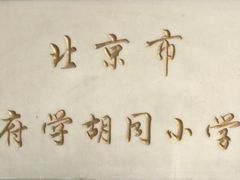 北京市
府学胡同小学